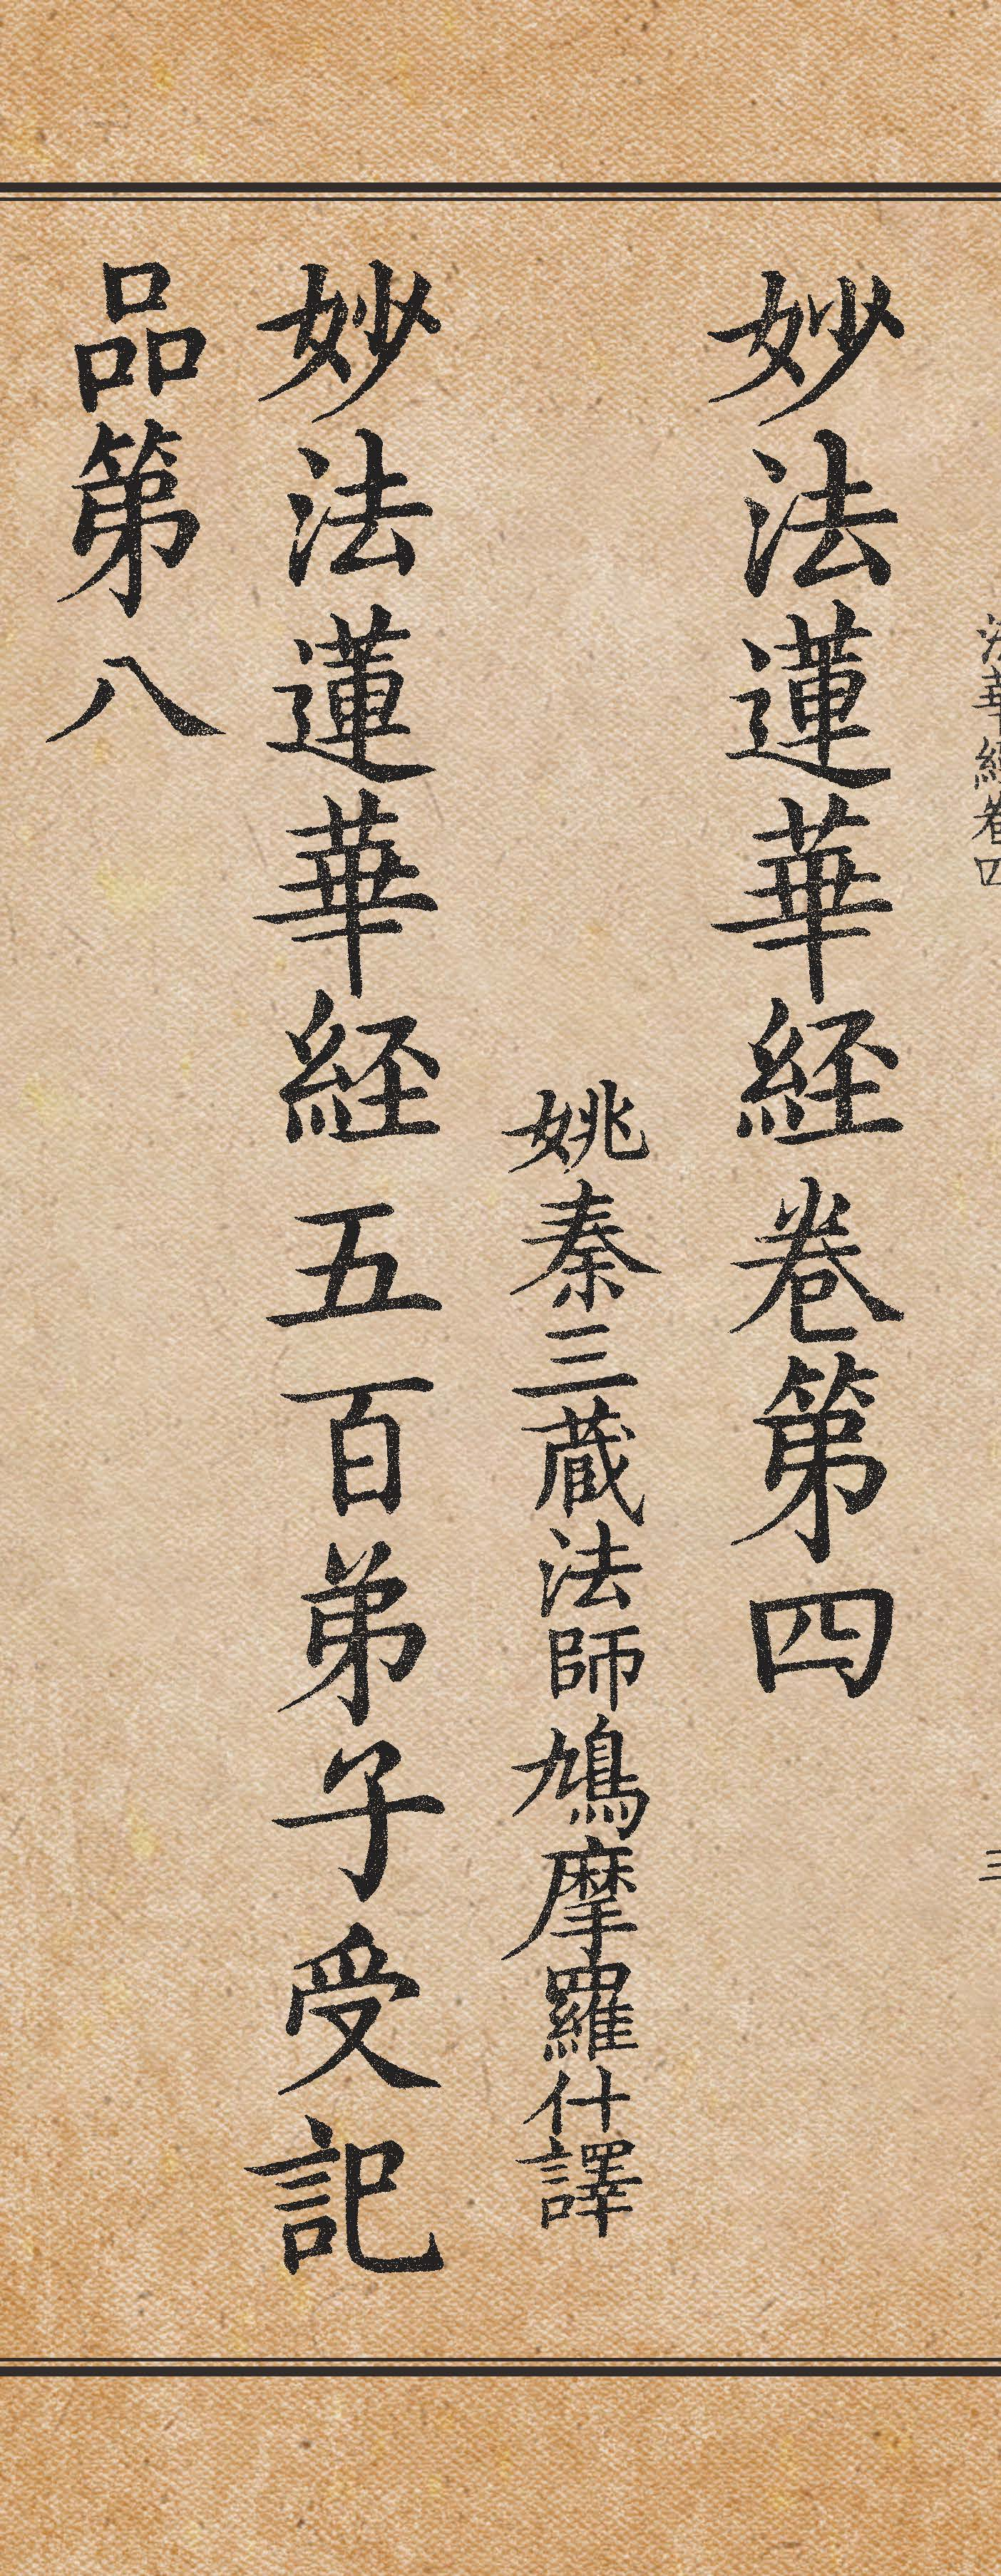 法華経巻四 三
妙法蓮華経巻第四
姚秦三蔵法師鳩摩羅什譯
妙法蓮華経五百弟子受記
品第八